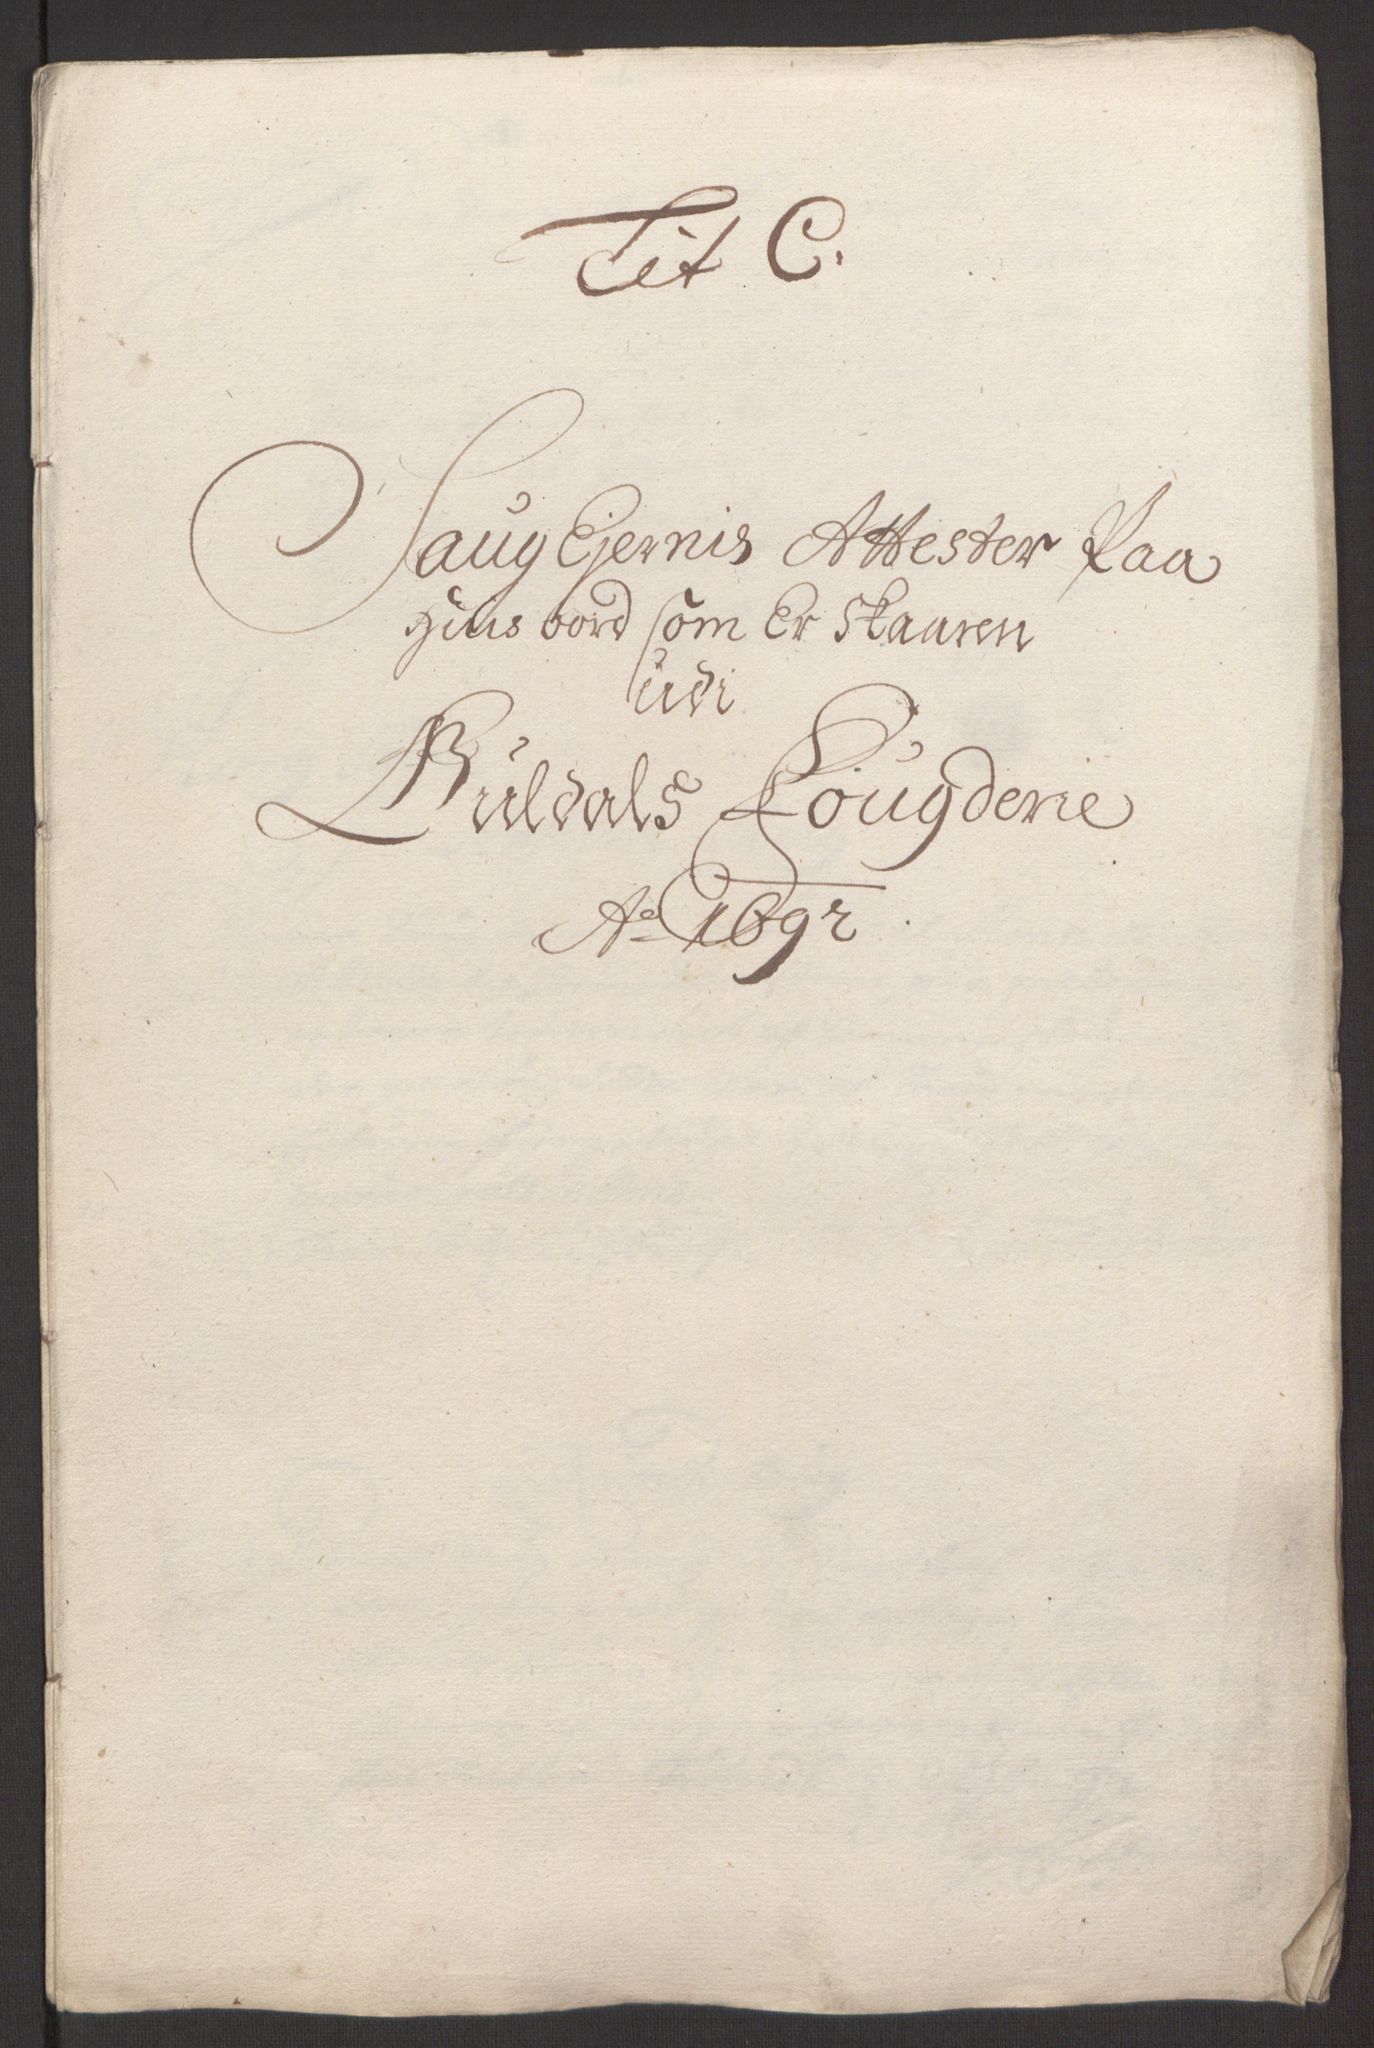 Lit C.
Saug Ejernis Attester Paa
huis bord som Er skaaren
udi
Guldals Fougderie
Ao 1692